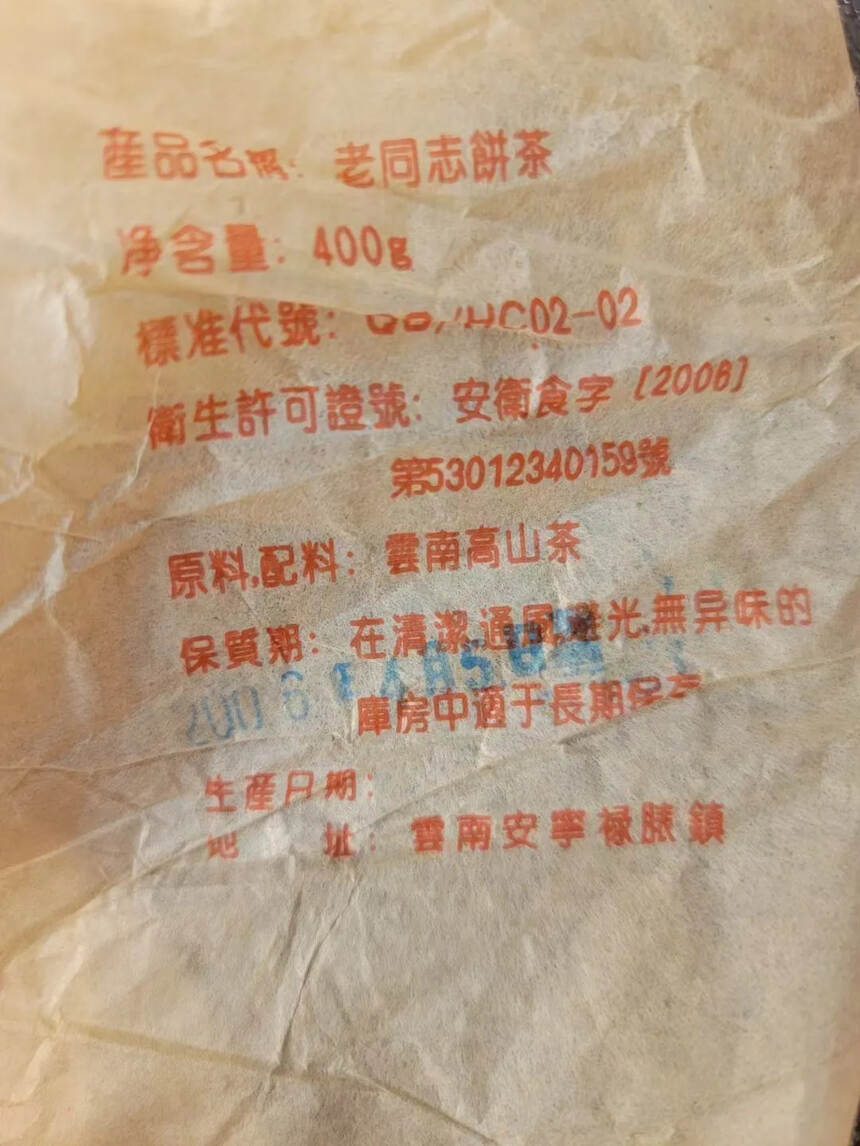 產品名稱：老同志餅茶
净含量：400g
標准代號：HC02-02
衛生許可證號：安衛食字［2006］
第53012340159號
原料,配料：雲南高山茶
保質期：在清潔,通風,避光,無异味的
庫房中適于長期保存
2006
生産日期：
地　址：雲南安寧禄脿鎮